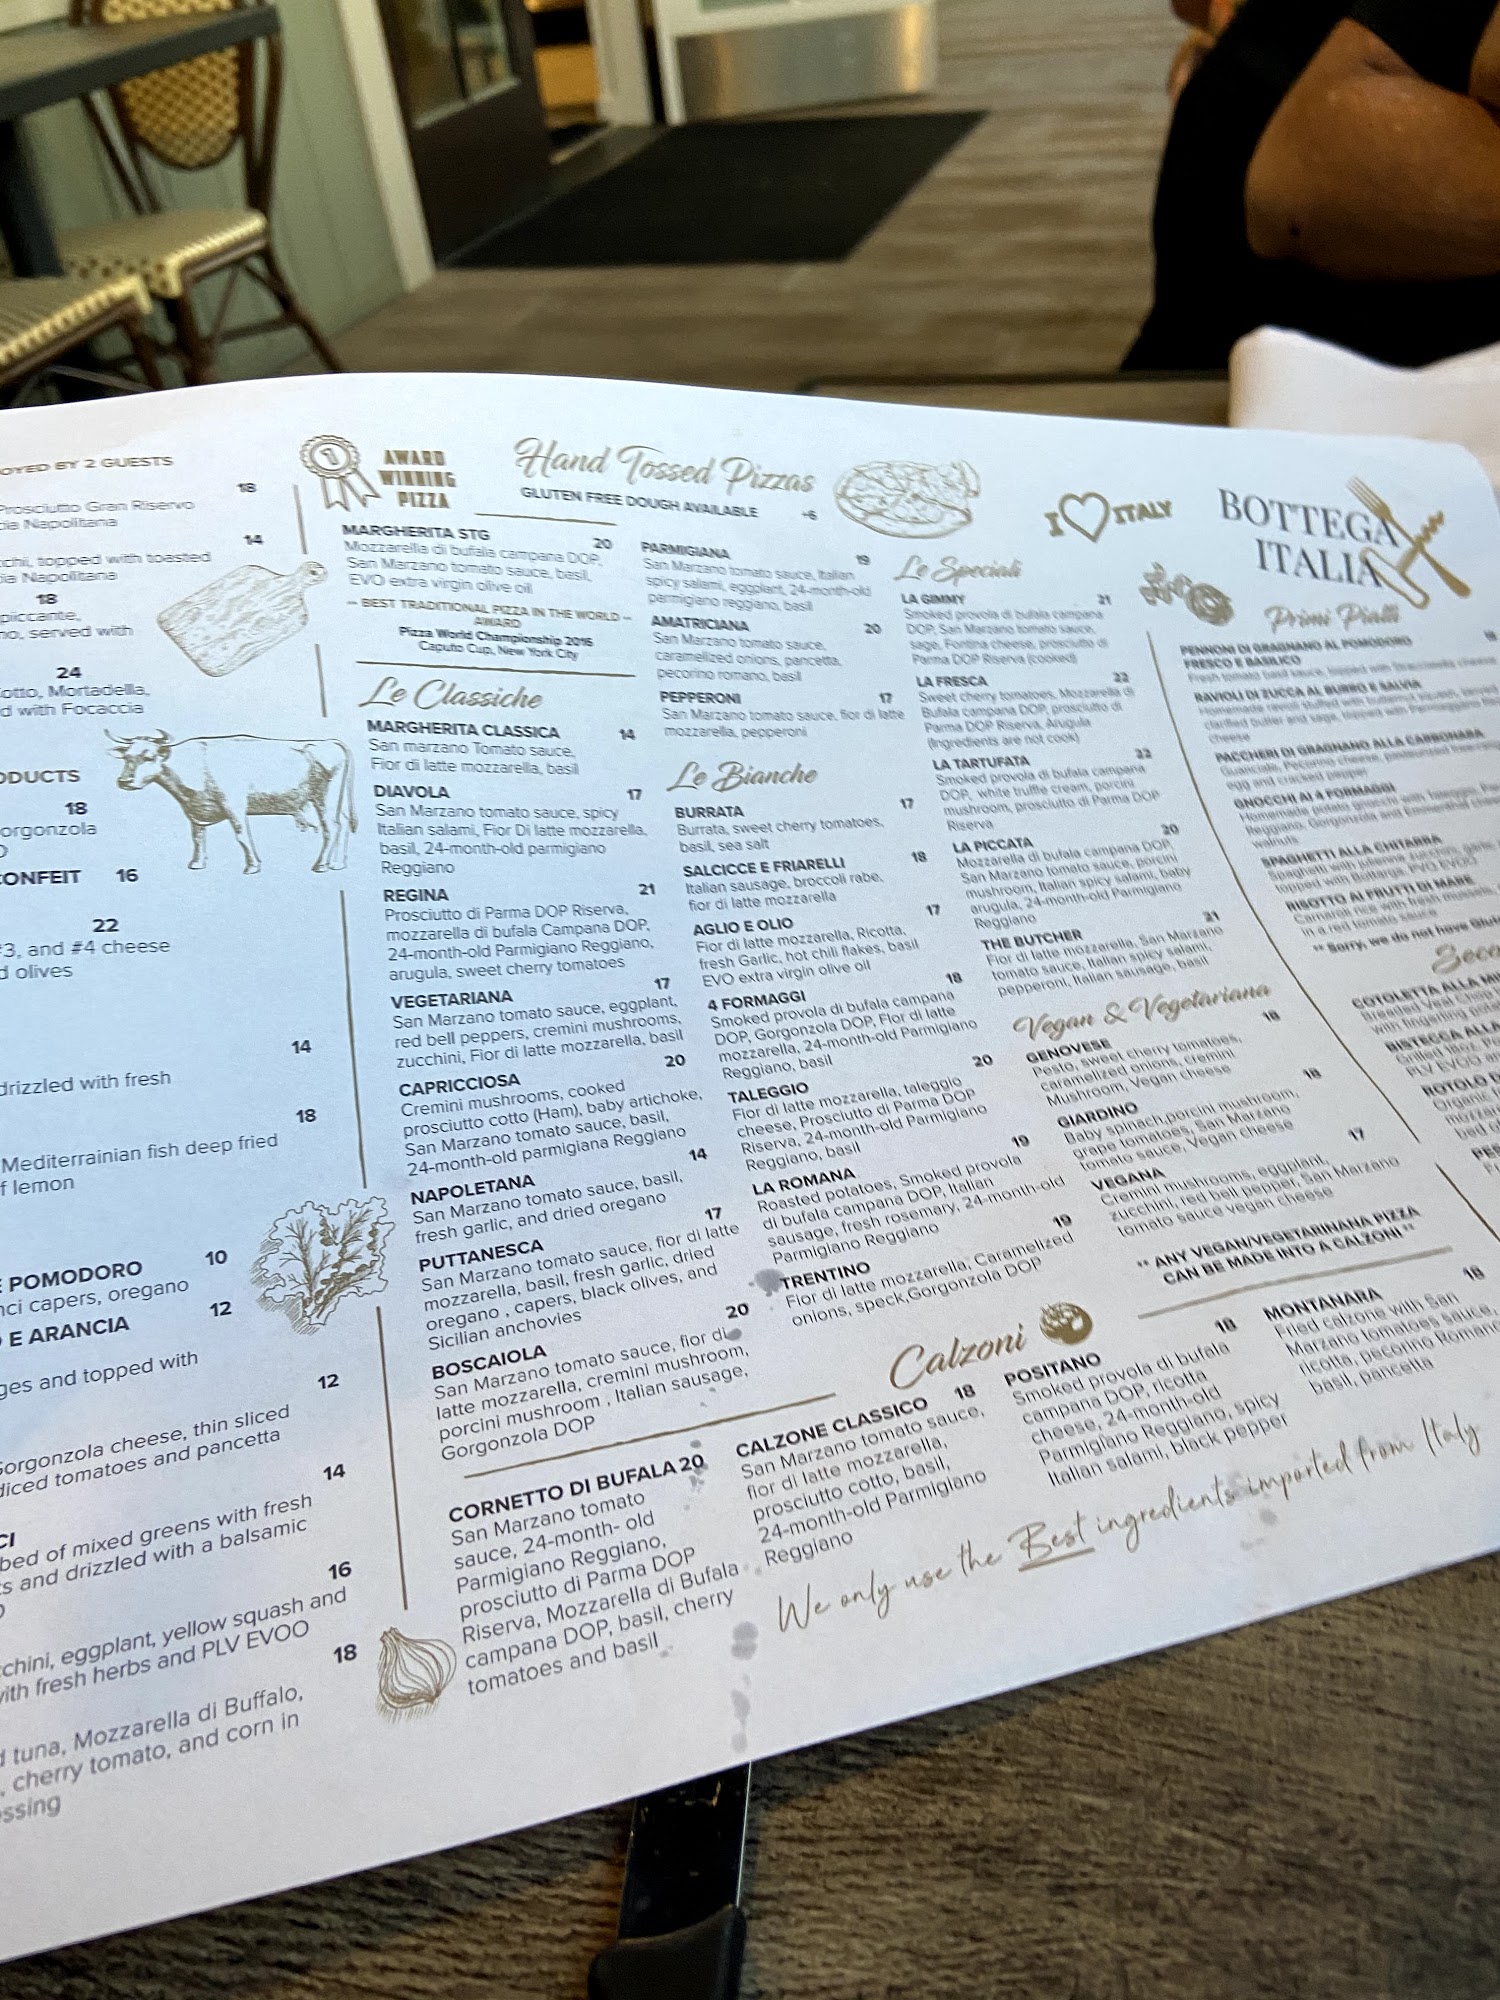 OYED BY 2 GUESTS
18
Prosciutto Gran Riservo
ia Napolitana
14
cchi, topped with toasted
ia Napolitana
18
piccante,
no, served with
24
otto, Mortadella,
d with Focaccia
ODUCTS
18
orgonzola
CONFEIT 16
22
#3, and #4 cheese
d olives
14
drizzled with fresh
18
Mediterrainian fish deep fried
f lemon
E POMODORO 10
nci capers, oregano
O E ARANCIA 12
ges and topped with
12
Gorgonzola cheese, thin sliced
diced tomatoes and pancetta
14
CI
bed of mixed greens with fresh
s and drizzled with a balsamic
16
cchini, eggplant, yellow squash and
with fresh herbs and PLV EVOO
18
d tuna, Mozzarella di Buffalo,
, cherry tomato, and corn in
essing
1
AWARD
WINNING
PIZZA
Hand Tossed Pizzas
GLUTEN FREE DOUGH AVAILABLE +6
MARGHERITA STG 20
Mozzarella di bufala campana DOP,
San Marzano tomato sauce, basil,
EVO extra virgin olive oil
-- BEST TRADITIONAL PIZZA IN THE WORLD --
AWARD
Pizza World Championship 2016
Caputo Cup, New York City
Le Classiche
MARGHERITA CLASSICA 14
San marzano Tomato sauce,
Fior di latte mozzarella, basil
DIAVOLA 17
San Marzano tomato sauce, spicy
Italian salami, Fior Di latte mozzarella,
basil, 24-month-old parmigiano
Reggiano
REGINA 21
Prosciutto di Parma DOP Riserva,
mozzarella di bufala Campana DOP,
24-month-old Parmigiano Reggiano,
arugula, sweet cherry tomatoes
VEGETARIANA 17
San Marzano tomato sauce, eggplant,
red bell peppers, cremini mushrooms,
zucchini, Fior di latte mozzarella, basil
CAPRICCIOSA 20
Cremini mushrooms, cooked
prosciutto cotto (Ham), baby artichoke,
San Marzano tomato sauce, basil,
24-month-old parmigiana Reggiano
NAPOLETANA 14
San Marzano tomato sauce, basil,
fresh garlic, and dried oregano
PUTTANESCA 17
San Marzano tomato sauce, fior di latte
mozzarella, basil, fresh garlic, dried
oregano , capers, black olives, and
Sicilian anchovies
BOSCAIOLA 20
San Marzano tomato sauce, fior di
latte mozzarella, cremini mushroom,
porcini mushroom , Italian sausage,
Gorgonzola DOP
PARMIGIANA 19
San Marzano tomato sauce, Italian
spicy salami, eggplant, 24-month-old
parmigiano reggiano, basil
AMATRICIANA 20
San Marzano tomato sauce,
caramelized onions, pancetta,
pecorino romano, basil
PEPPERONI 17
San Marzano tomato sauce, fior di latte
mozzarella, pepperoni
Le Bianche
BURRATA 17
Burrata, sweet cherry tomatoes,
basil, sea salt
SALCICCE E FRIARELLI 18
Italian sausage, broccoli rabe,
fior di latte mozzarella
AGLIO E OLIO 17
Fior di latte mozzarella, Ricotta,
fresh Garlic, hot chili flakes, basil
EVO extra virgin olive oil
4 FORMAGGI 18
Smoked provola di bufala campana
DOP, Gorgonzola DOP, Fior di latte
mozzarella, 24-month-old Parmigiano
Reggiano, basil
TALEGGIO 20
Fior di latte mozzarella, taleggio
cheese, Prosciutto di Parma DOP
Riserva, 24-month-old Parmigiano
Reggiano, basil
LA ROMANA 19
Roasted potatoes, Smoked provola
di bufala campana DOP, Italian
sausage, fresh rosemary, 24-month-old
Parmigiano Reggiano
TRENTINO 19
Fior di latte mozzarella, Caramelized
onions, speck,Gorgonzola DOP
I ITALY
Le Speciali
LA GIMMY 21
Smoked provola di bufala campana
DOP, San Marzano tomato sauce,
sage, Fontina cheese, prosciutto di
Parma DOP Riserva (cooked)
LA FRESCA 22
Sweet cherry tomatoes, Mozzarella di
Bufala campana DOP, prosciutto di
Parma DOP Riserva, Arugula
(Ingredients are not cook)
LA TARTUFATA 22
Smoked provola di bufala campana
DOP, white truffle cream, porcini
mushroom, prosciutto di Parma DOP
Riserva
LA PICCATA 20
Mozzarella di bufala campana DOP,
San Marzano tomato sauce, porcini
mushroom, Italian spicy salami, baby
arugula, 24-month-old Parmigiano
Reggiano
THE BUTCHER 21
Fior di latte mozzarella, San Marzano
tomato sauce, Italian spicy salami,
pepperoni, Italian sausage, basil
Vegan & Vegetariana
GENOVESE 18
Pesto, sweet cherry tomatoes,
caramelized onions, cremini
Mushroom, Vegan cheese
GIARDINO 18
Baby spinach,porcini mushroom,
grape tomatoes, San Marzano
tomato sauce, Vegan cheese
VEGANA 17
Cremini mushrooms, eggplant,
zucchini, red bell pepper, San Marzano
tomato sauce vegan cheese
** ANY VEGAN/VEGETARINANA PIZZA
CAN BE MADE INTO A CALZONI **
Calzoni
CORNETTO DI BUFALA 20
San Marzano tomato
sauce, 24-month- old
Parmigiano Reggiano,
prosciutto di Parma DOP
Riserva, Mozzarella di Bufala
campana DOP, basil, cherry
tomatoes and basil
CALZONE CLASSICO 18
San Marzano tomato sauce,
fior di latte mozzarella,
prosciutto cotto, basil,
24-month-old Parmigiano
Reggiano
POSITANO 18
Smoked provola di bufala
campana DOP, ricotta
cheese, 24-month-old
Parmigiano Reggiano, spicy
Italian salami, black pepper
MONTANARA 18
Fried calzone with San
Marzano tomatoes sauce,
ricotta, pecorino Romano
basil, pancetta
We only use the Best ingredients imported from Italy
BOTTEGA
ITALIA
Primi Piatti
PENNONI DI GRAGNANO AL POMODORO
FRESCO E BASILICO
Fresh tomato basil sauce, topped with Stracciatella cheese
RAVIOLI DI ZUCCA AL BURRO E SALVIA
Homemade ravioli stuffed with butternut squash, served
clarified butter and sage, topped with Parmigiano
cheese
PACCHERI DI GRAGNANO ALLA CARBONARA
Guanciale, Pecorino cheese,
egg and cracked pepper
GNOCCHI AI 4 FORMAGGI
Homemade potato gnocchi with Taleggio,
Reggiano, Gorgonzola and
walnuts
SPAGHETTI ALLA CHITARRA
Spaghetti with julienne zucchini, garlic
topped with Bottarga, PVO EVOO
RISOTTO AI FRUTTI DI MARE
Carnaroli rice with fresh mussels,
in a red tomato sauce
** Sorry, we do not have
Seco
COTOLETTA ALLA MI
Breaded Veal Chop
with fingerling
BISTECCA ALLA
Grilled
PLV EVOO and
ROTOLO D
Organic
mozzar
bed of